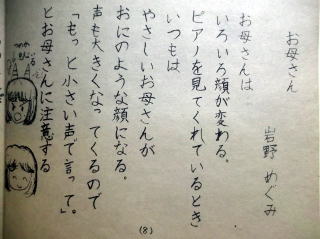 お母さん
岩野 めぐみ
お母さんは
いろいろ顔が変わる。
ピアノを見てくれているとき
いつもは
やさしいお母さんが
おにのような顔になる。
声も大きくなってくるので
「もっと小さい声で言って」。
とお母さんに注意する
(8)